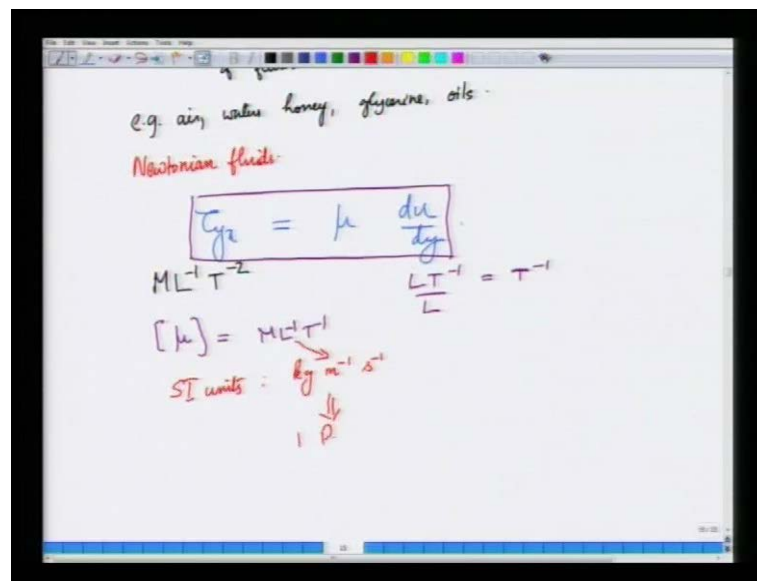 File Edit View Insert Actions Tools Help
of
e.g. air, water honey, glycerine, oils.
Newtonian fluids.
τyx = μ du/dy
ML⁻¹T⁻² LT⁻¹/L = T⁻¹
[μ] = ML⁻¹T⁻¹
SI units : kg m⁻¹ s⁻¹
1 P